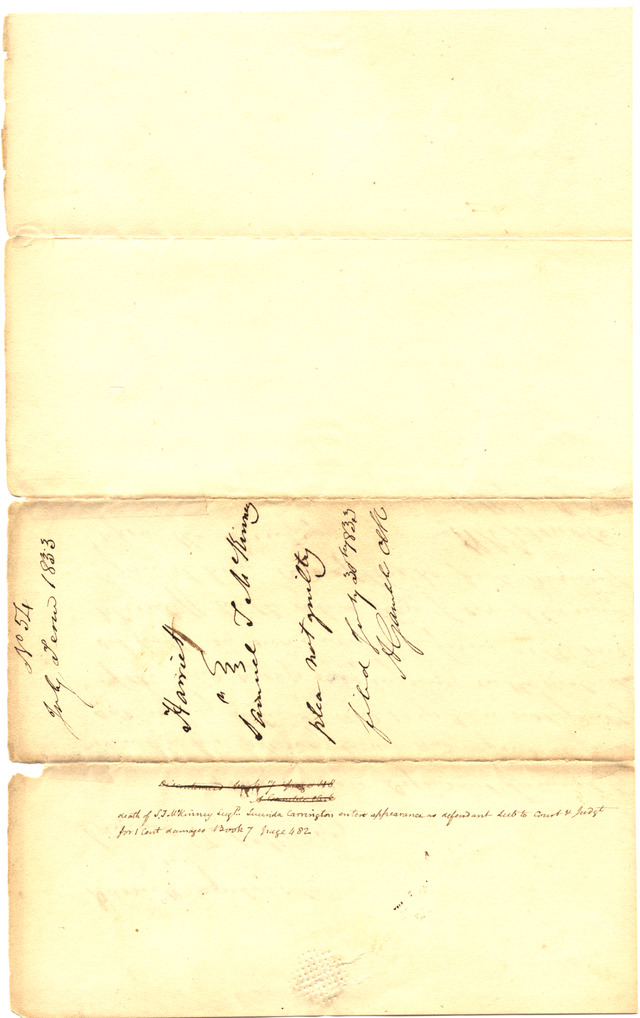 No 54
July Term 1833
Harriet
vs
Samuel T McKinney
plea not guilty
filed July 30th 1833
A Gamble Clk
Book 7 page 48
A Gamble Clk
death of S.T. McKinney Sugd. Lucinda Carrington enters appearance as defendant Sub to Court & Judgt
for 1 Cent damages Book 7 page 482